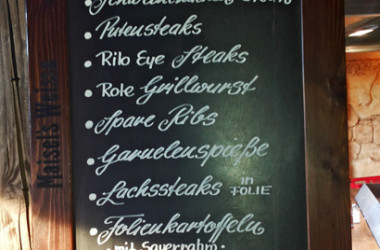 Putensteaks
Rib Eye Steaks
Rote Grillwurst
Spare Ribs
Garnelenspieße
Lachssteaks IN FOLIE
Folienkartoffeln
• mit Sauerrahm •
Maisel's Weisse